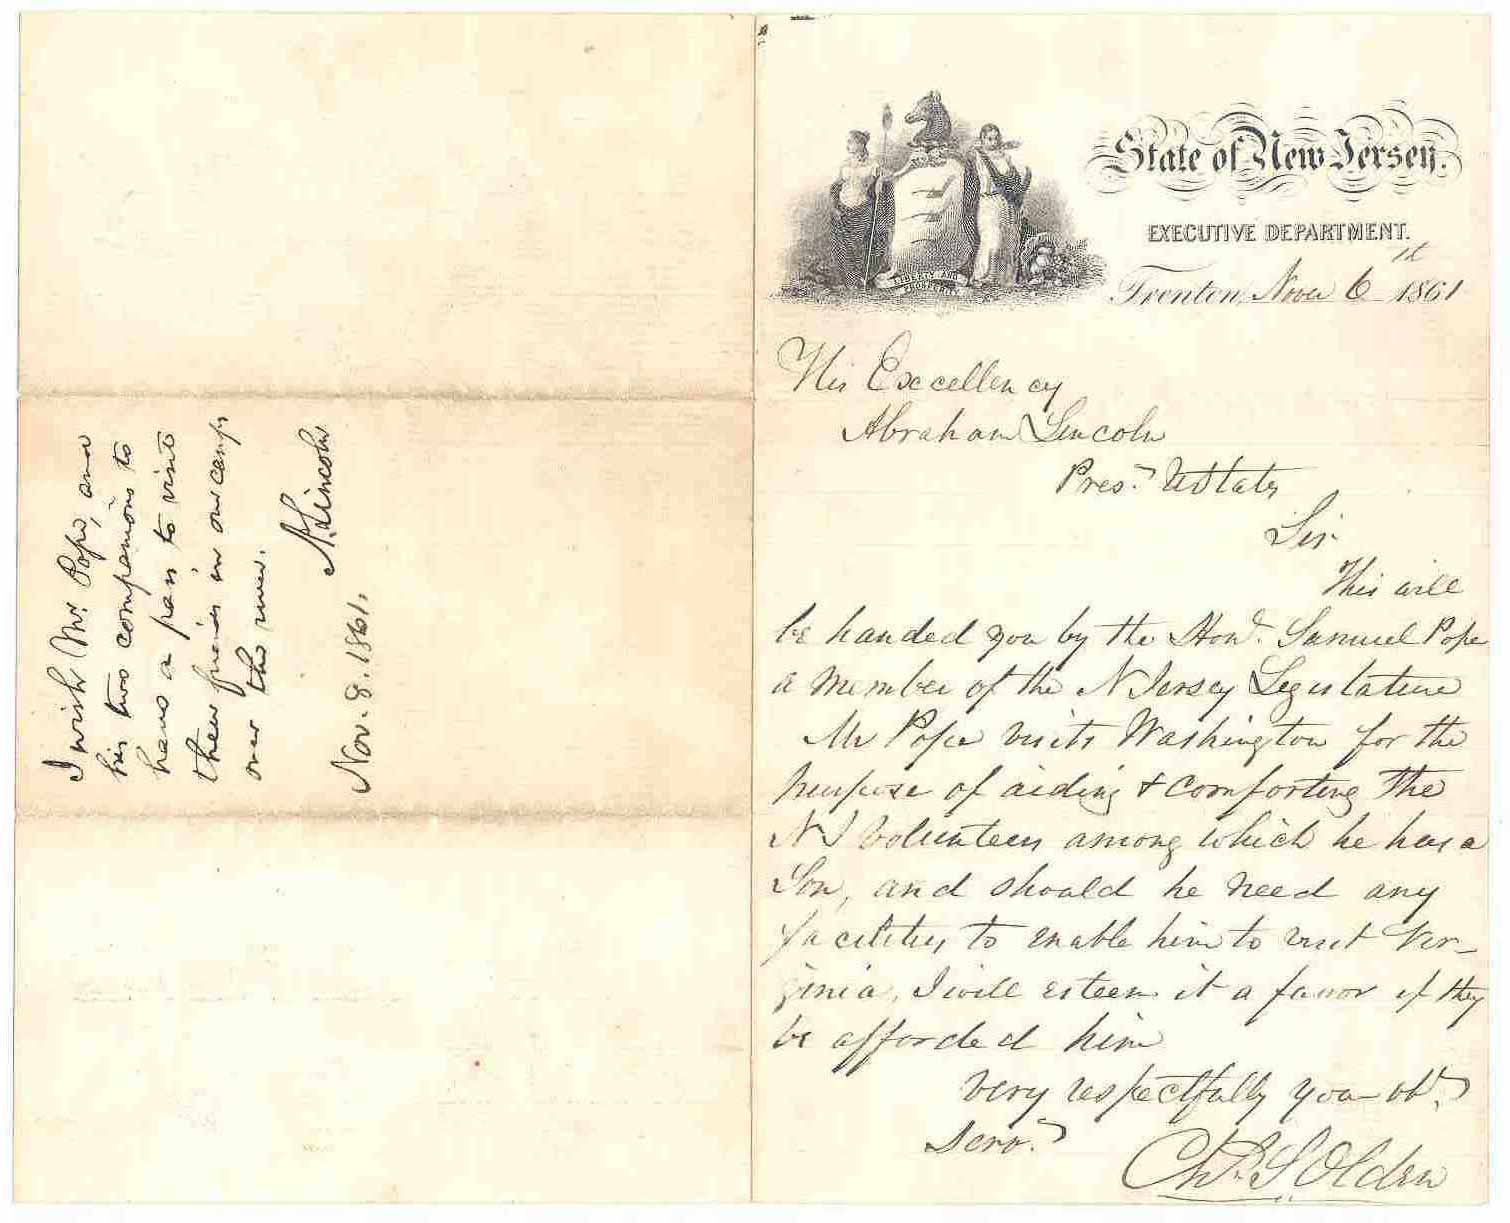 I wish Mr. Pope, and
his two companions to
have a pass to visit
their friends in our camps
over the river.
A. Lincoln
Nov. 8. 1861.
State of New Jersey.
EXECUTIVE DEPARTMENT.
LIBERTY AND
PROSPERITY
Trenton, Novr 6 1861
His Excellency
Abraham Lincoln
Pres.t UStates
Sir
This will
be handed you by the Hon.l Samuel Pope
a member of the NJersey Legislature
Mr Pope visits Washington for the
purpose of aiding & comforting the
NJ Volunteers among which he has a
Son, and should he need any
facilities to enable him to visit Vir-
ginia, I will esteem it a favor if they
be afforded him
very respectfully your obt.
Servt.
Chs. S. Olden